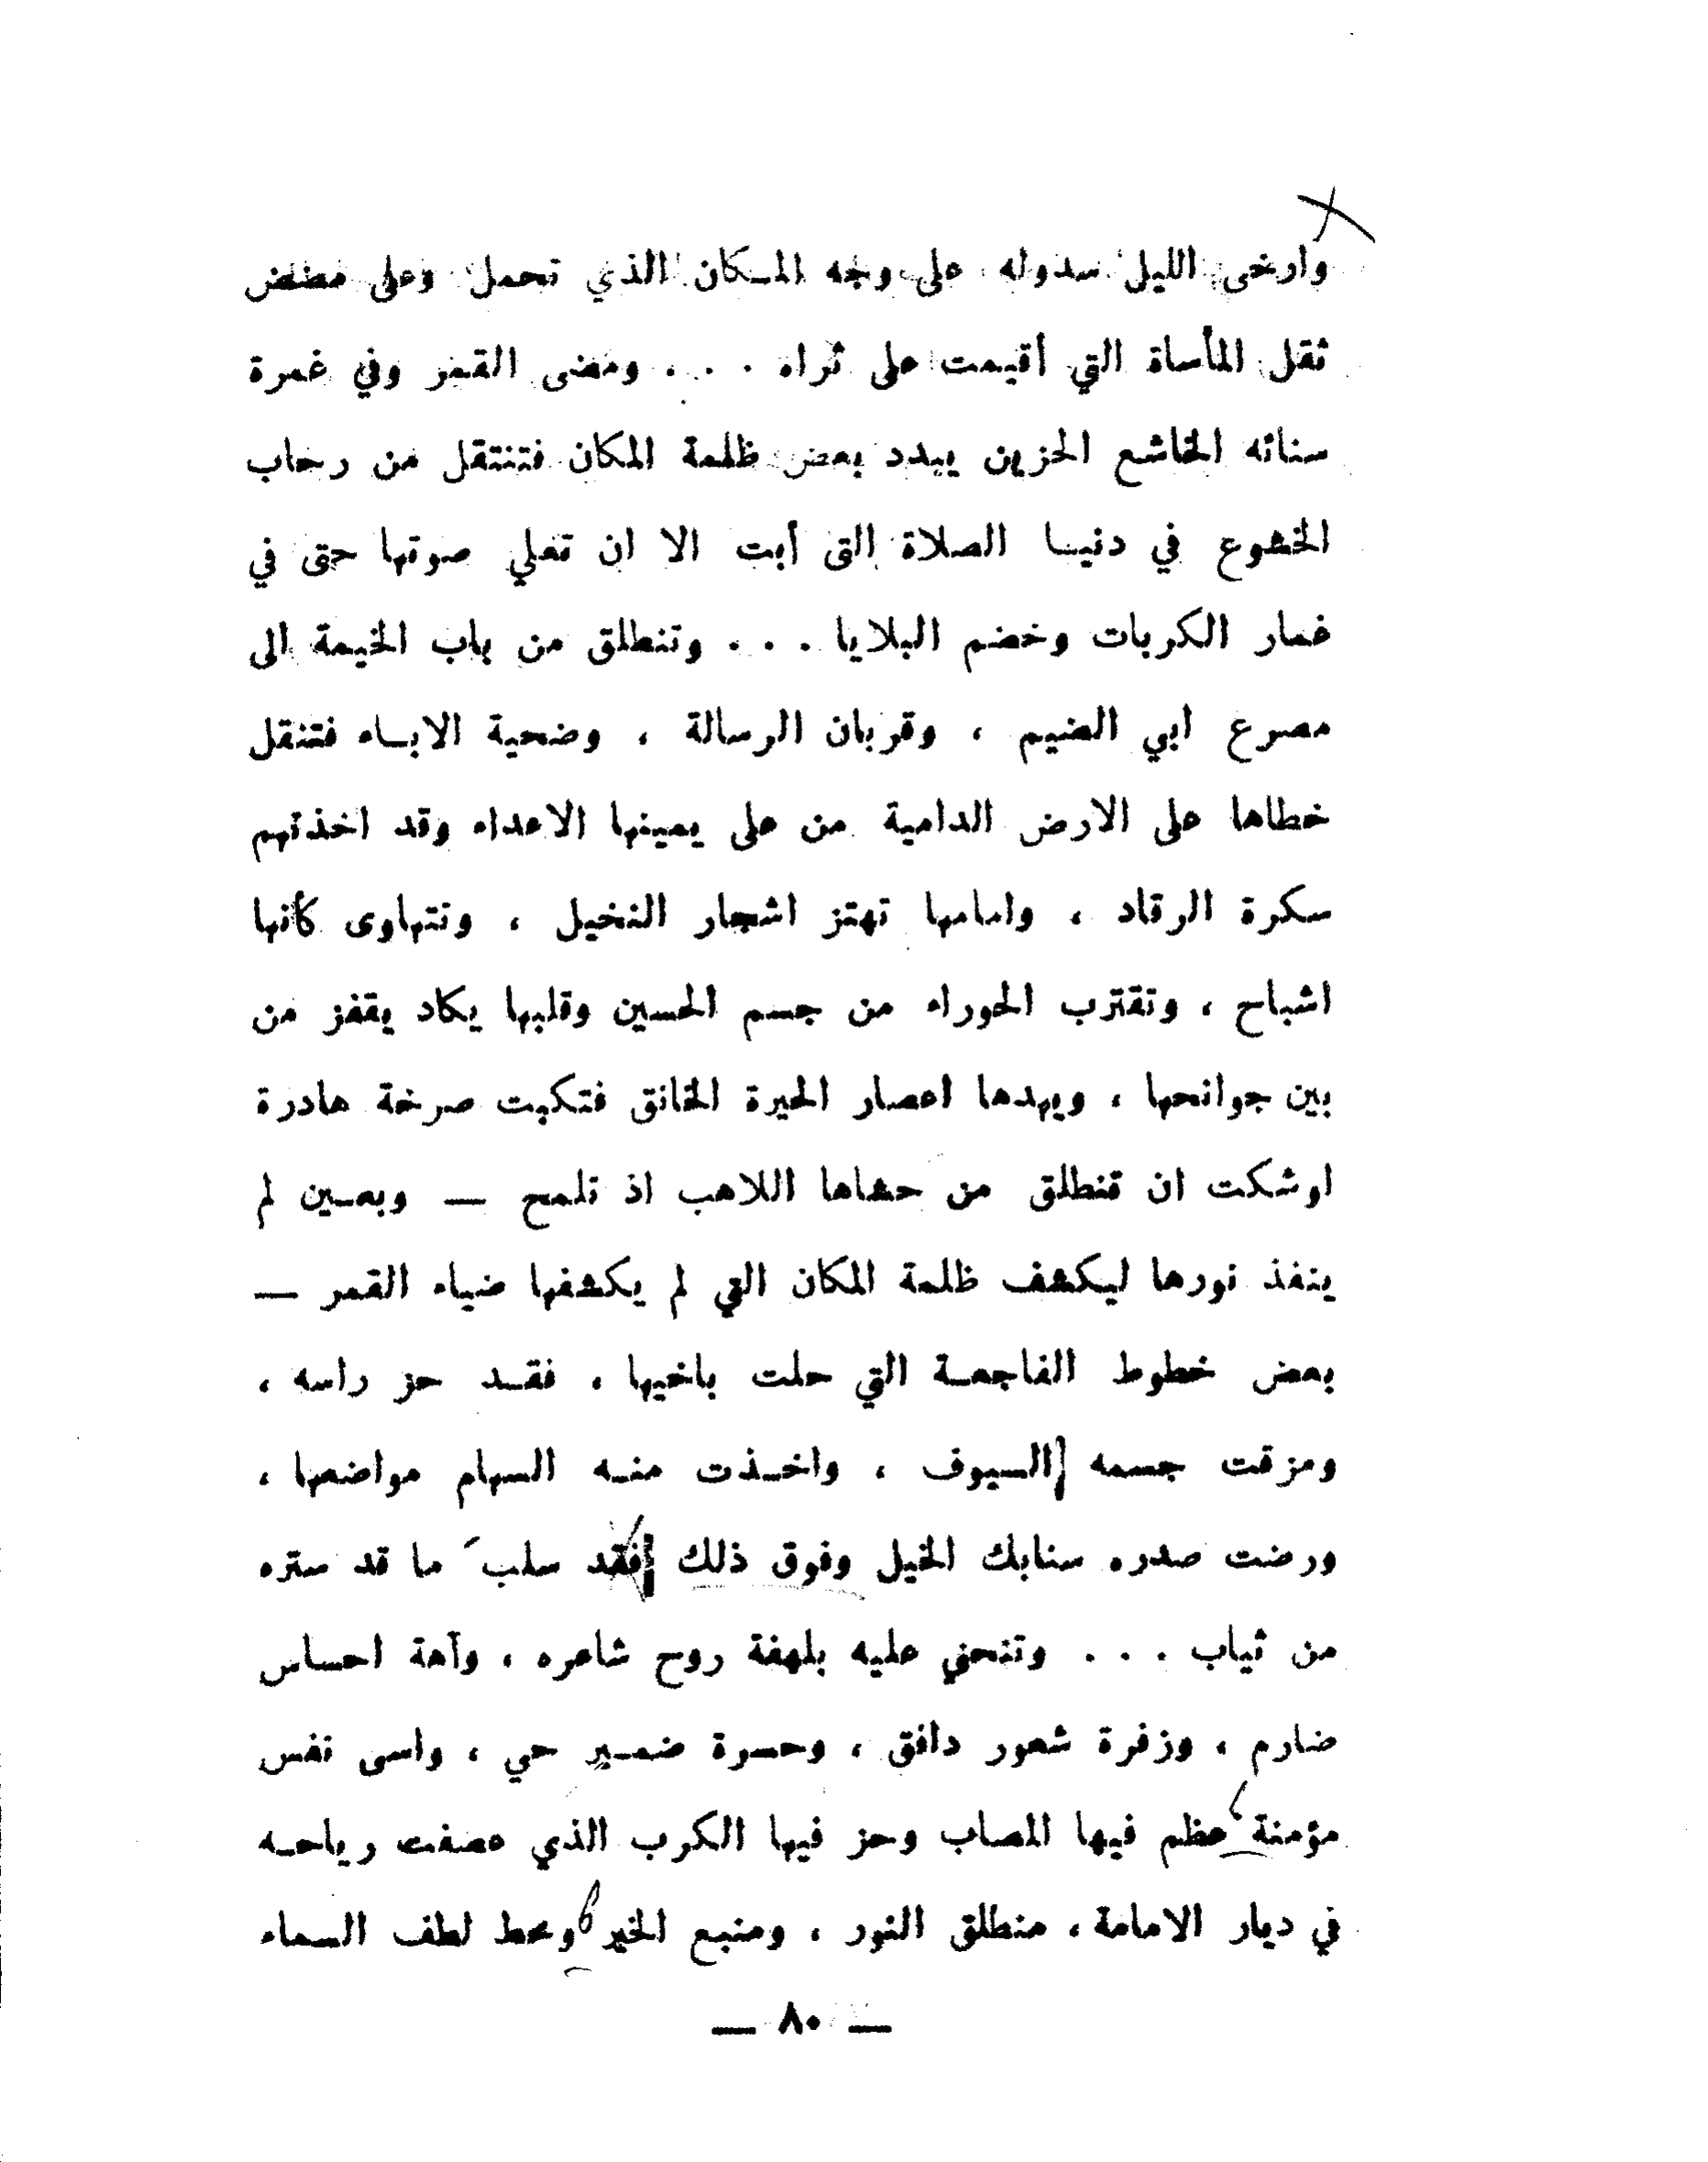 وارخى الليل سدوله على وجه المـكان الذي تحمل وعلى مضض
ثقل المأساة التي أقيمت على ثراه . . . ومضى القمر وفي غمرة
سنائه الخاشع الحزين يبدد بعض ظلمة المكان فتنتقل من رحاب
الخشوع في دنيـا الصلاة التى أبت الا ان تعلي صوتها حتى في
غمار الكربات وخضم البلايا . . . وتنطلق من باب الخيمة الى
مصرع ابي الضيم ، وقربان الرسالة ، وضحية الابـاء فتنقل
خطاها على الارض الدامية من على يمينها الاعداء وقد اخذتهم
سكرة الرقاد ، وامامها تهتز اشجار النخيل ، وتتهاوى كأنها
اشباح ، وتقترب الحوراء من جسم الحسين وقلبها يكاد يقفز من
بين جوانحها ، ويهدها اعصار الحيرة الخانق فتكبت صرخة هادرة
اوشكت ان تنطلق من حشاها اللاهب اذ تلمح — وبعـين لم
ينفذ نورها ليكشف ظلمة المكان التي لم يكشفها ضياء القمر —
بعض خطوط الفاجعـة التي حلت باخيها ، فقـد حز راسه ،
ومزقت جسمه السيوف ، واخـذت منـه السهام مواضعها ،
ورضت صدره سنابك الخيل وفوق ذلك فقد سلبَ ما قد ستره
من ثياب . . . وتنحني عليه بلهفة روح شاعره ، وآهة احساس
ضارم ، وزفرة شعور دافق ، وحسرة ضمـير حي ، واسى نفس
مؤمنة عظم فيها المصاب وحز فيها الكرب الذي عصفت رياحـه
في ديار الامامة ، منطلق النور ، ومنبع الخير ومحط لطف السماء
— ٨٠ —